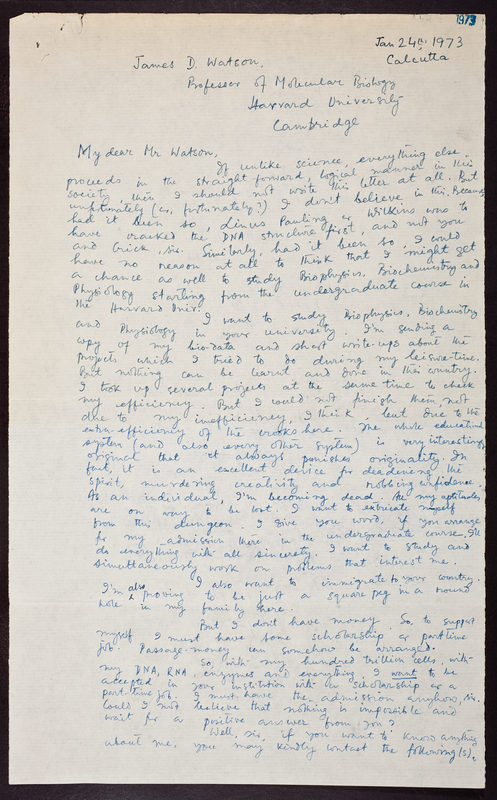 1973
Jan 24th, 1973
Calcutta
James D. Watson,
Professor of Molecular Biology
Harvard University
Cambridge
My dear Mr Watson,
If unlike science, everything else
proceeds in the straight forward, logical manner in this
society, then I should not write this letter at all. But
unfortunately (or, fortunately?) I don't believe in this. Because
had it been so, Linus Pauling or Wilkins was to
have cracked the DNA structure first, and not you
and Crick, sir. Similarly, had it been so, I could
have no reason at all to think that I might get
a chance as well to study Biophysics, Biochemistry and
Physiology starting from the undergraduate course in
the Harvard Univ.
I want to study Biophysics, Biochemistry
and Physiology in your university. I'm sending a
copy of my bio-data and short write-ups about the
projects which I tried to do during my leisure-time.
But nothing can be learnt and done in this country.
I took up several projects at the same time to check
my efficiency. But I could not finish them, not
due to my inefficiency, I think, but due to the
extra-efficiency of the crooks here. The whole educational
system (and also every other system) is very interestingly
original that it always punishes originality. In
fact, it is an excellent device for deadening the
spirit, murdering creativity and robbing confidence.
As an individual, I'm becoming dead. All my aptitudes
are on way to be lost. I want to extricate myself
from this dungeon. I give you word, if you arrange
for my admission there in the undergraduate course, I'll
do everything with all sincerety. I want to study and
simultaneously work on problems that interest me.
I also want to immigrate to your country.
I'm also proving to be just a square peg in a round
hole in my family here.
But I don't have money. So, to support
myself I must have some scholarship or part time
job. Passage-money can somehow be arranged.
So, with my hundred trillion cells, with
my DNA, RNA, enzymes and everything, I want to be
accepted in your institution with a scholarship or a
part-time job. I must have the admission anyhow, sir.
Could I not believe that nothing is impossible and
wait for a positive answer from you?
Well, sir, if you want to know anything
about me, you may kindly contact the following(s).